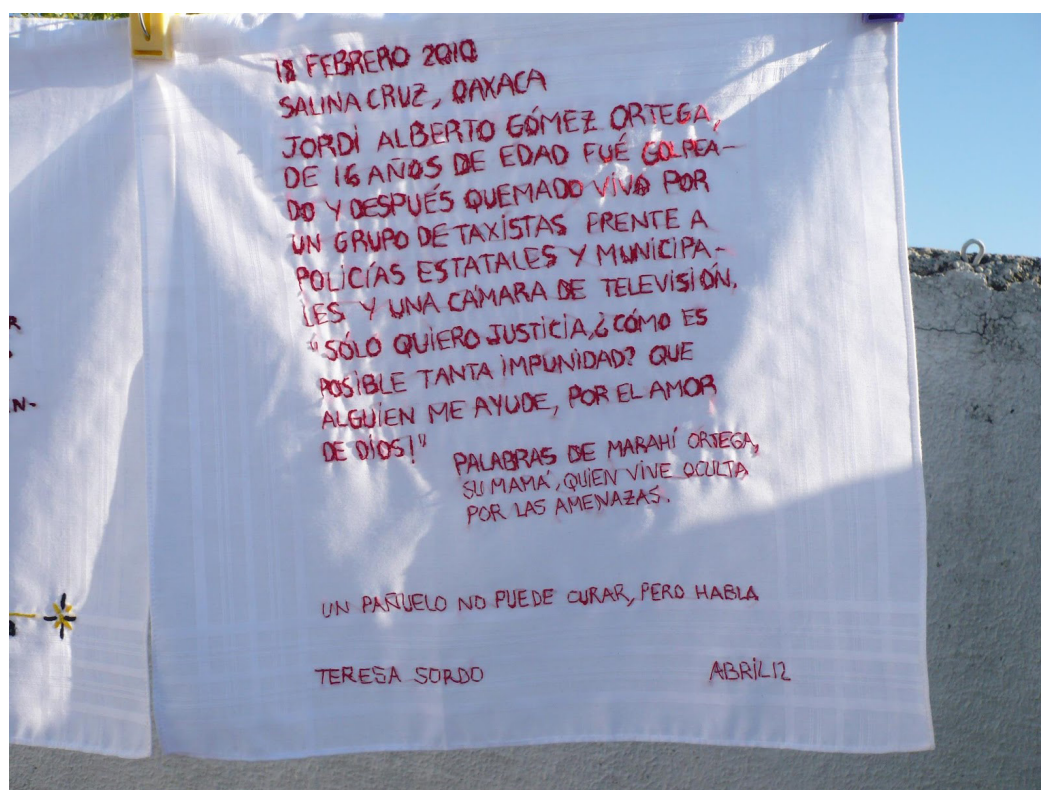 18 FEBRERO 2010
SALINA CRUZ, OAXACA
JORDÍ ALBERTO GÓMEZ ORTEGA,
DE 16 AÑOS DE EDAD FUÉ GOLPEA-
DO Y DESPUÉS QUEMADO VIVO POR
UN GRUPO DE TAXÍSTAS FRENTE A
POLICÍAS ESTATALES Y MUNICIPA-
LES Y UNA CÁMARA DE TELEVISIÓN.
"SÓLO QUIERO JUSTICIA, ¿CÓMO ES
POSIBLE TANTA IMPUNIDAD? QUE
ALGUIEN ME AYUDE, POR EL AMOR
DE DIOS!"
PALABRAS DE MARAHÍ ORTEGA,
SU MAMÁ, QUIEN VIVE OCULTA
POR LAS AMENAZAS.
UN PAÑUELO NO PUEDE CURAR, PERO HABLA
TERESA SORDO
ABRIL12